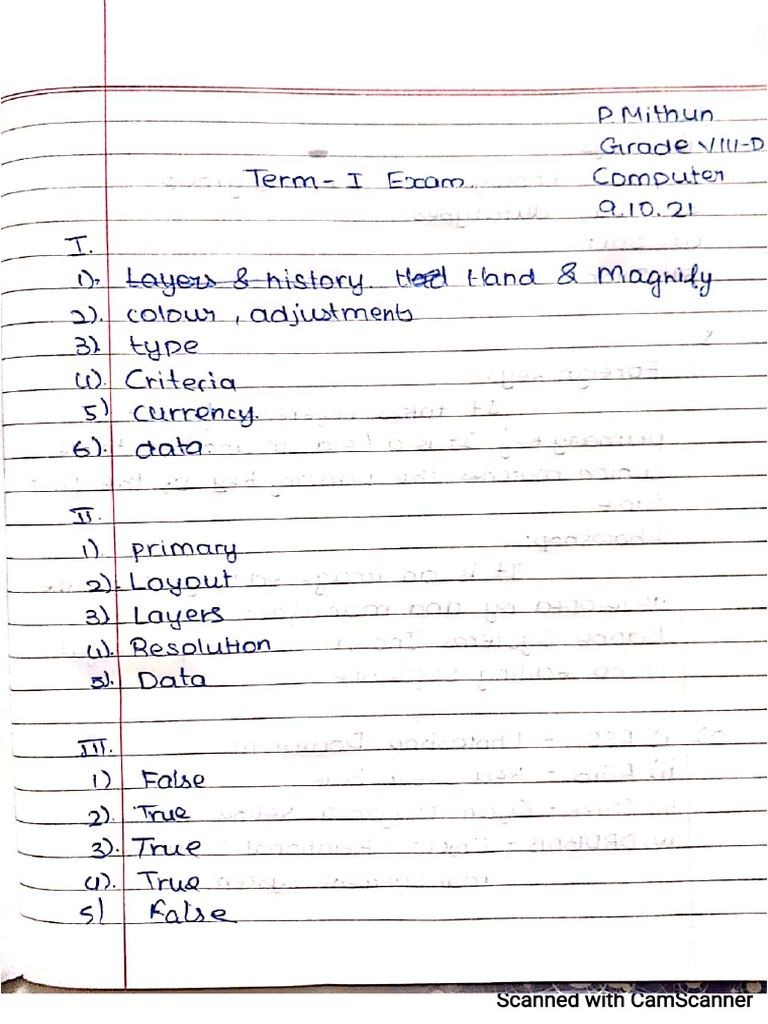 P. Mithun
Grade VIII-D
Term - I Exam Computer
9.10.21
I.
1). Layers & history. Hand & Magnify
2). colour, adjustment
3) type
4). Criteria
5) currency.
6). data.
II.
1) primary
2). Layout
3) Layers
4). Resolution
5). Data
III.
1) False
2). True
3). True
4). True
5) False
Scanned with CamScanner